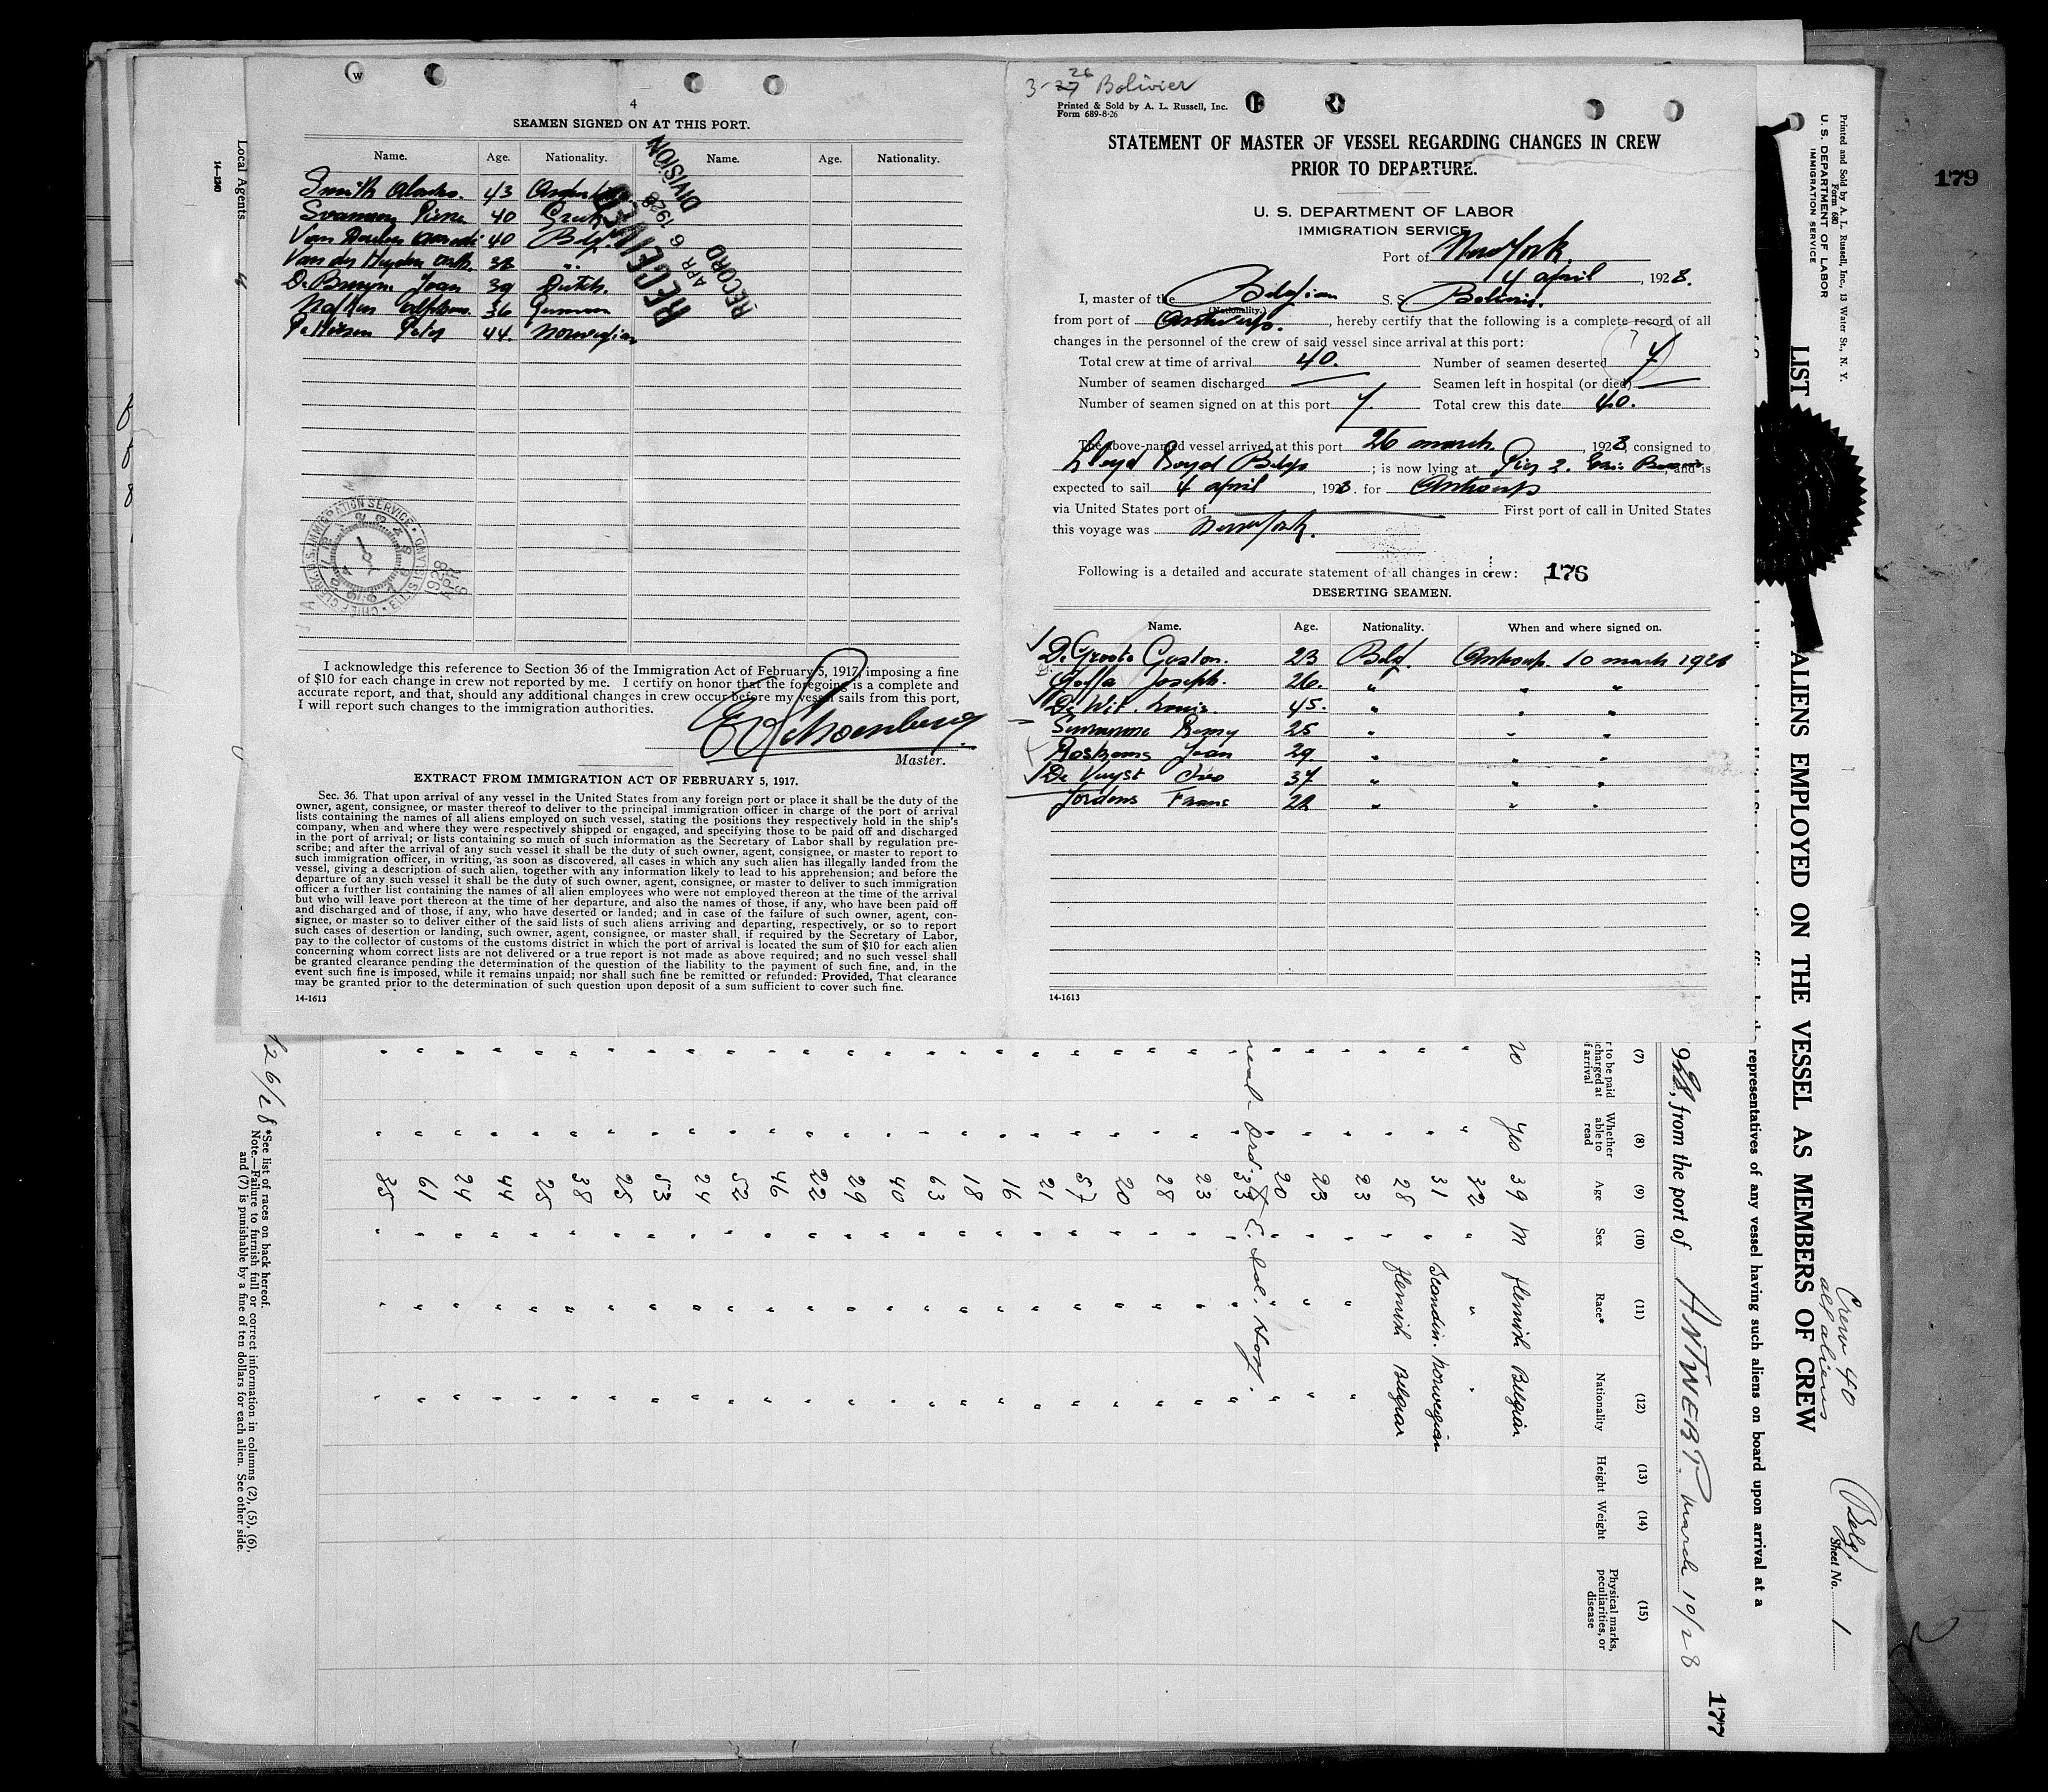 179
w
4
SEAMEN SIGNED ON AT THIS PORT.
Name. Age. Nationality. Name. Age. Nationality.
Smith 43
40 Greek
Van 40 Belg.
Van der Heyden 38 "
De Bruyne Jean 39 Dutch.
Alphons. 36 German
Pettersen Peter 44. Norwegian
RECEIVED
APR 6 1928
RECORD DIVISION
U.S. IMMIGRATION SERVICE
CHIEF CLERK
I acknowledge this reference to Section 36 of the Immigration Act of February 5, 1917, imposing a fine
of $10 for each change in crew not reported by me. I certify on honor that the foregoing is a complete and
accurate report, and that, should any additional changes in crew occur before my vessel sails from this port,
I will report such changes to the immigration authorities.
Master.
EXTRACT FROM IMMIGRATION ACT OF FEBRUARY 5, 1917.
Sec. 36. That upon arrival of any vessel in the United States from any foreign port or place it shall be the duty of the
owner, agent, consignee, or master thereof to deliver to the principal immigration officer in charge of the port of arrival
lists containing the names of all aliens employed on such vessel, stating the positions they respectively hold in the ship's
company, when and where they were respectively shipped or engaged, and specifying those to be paid off and discharged
in the port of arrival; or lists containing so much of such information as the Secretary of Labor shall by regulation pre-
scribe; and after the arrival of any such vessel it shall be the duty of such owner, agent, consignee, or master to report to
such immigration officer, in writing, as soon as discovered, all cases in which any such alien has illegally landed from the
vessel, giving a description of such alien, together with any information likely to lead to his apprehension; and before the
departure of any such vessel it shall be the duty of such owner, agent, consignee, or master to deliver to such immigration
officer a further list containing the names of all alien employees who were not employed thereon at the time of the arrival
but who will leave port thereon at the time of her departure, and also the names of those, if any, who have been paid off
and discharged and of those, if any, who have deserted or landed; and in case of the failure of such owner, agent, con-
signee, or master so to deliver either of the said lists of such aliens arriving and departing, respectively, or so to report
such cases of desertion or landing, such owner, agent, consignee, or master shall, if required by the Secretary of Labor,
pay to the collector of customs of the customs district in which the port of arrival is located the sum of $10 for each alien
concerning whom correct lists are not delivered or a true report is not made as above required; and no such vessel shall
be granted clearance pending the determination of the question of the liability to the payment of such fine, and, in the
event such fine is imposed, while it remains unpaid; nor shall such fine be remitted or refunded: Provided, That clearance
may be granted prior to the determination of such question upon deposit of a sum sufficient to cover such fine.
14-1613
3-27 26 Bolivier
Printed & Sold by A. L. Russell, Inc.
Form 689-8-26
STATEMENT OF MASTER OF VESSEL REGARDING CHANGES IN CREW
PRIOR TO DEPARTURE.
U. S. DEPARTMENT OF LABOR
IMMIGRATION SERVICE
Port of New York.
4 april, 1928.
I, master of the Belgian S. S.
(Nationality.)
from port of Antwerp., hereby certify that the following is a complete record of all
changes in the personnel of the crew of said vessel since arrival at this port:
Total crew at time of arrival 40. Number of seamen deserted 7
Number of seamen discharged — Seamen left in hospital (or died) —
Number of seamen signed on at this port 7. Total crew this date 40.
The above-named vessel arrived at this port 26 march., 1928, consigned to
Lloyd Royal Belge; is now lying at Pier 2. Erie Basin, and is
expected to sail 4 april, 1928. for Antwerp
via United States port of — First port of call in United States
this voyage was New York.
Following is a detailed and accurate statement of all changes in crew: 176
DESERTING SEAMEN.
Name. Age. Nationality. When and where signed on.
De Groote Gaston. 23 Belg. Antwerp 10 march 1928
Joseph. 26. " " "
De Wit. Louis. 45. " " "
Remy 25 " " "
Jean 29. " " "
De Vuyst Théo 37 " " "
Jordens Frans 22 " " "
14-1613
Printed and Sold by A. L. Russell, Inc., 13 Water St., N. Y.
Form 680
U. S. DEPARTMENT OF LABOR
IMMIGRATION SERVICE
LIST
ALIENS EMPLOYED ON THE VESSEL AS MEMBERS OF CREW
Crew 40
all aliens
(Belg)
Sheet No. 1
representatives of any vessel having such aliens on board upon arrival at a
928, from the port of ANTWERP. March 10/28
177
(7) (8) (9) (10) (11) (12) (13) (14) (15)
r to be paid
charged at
f arrival
Whether
able to
read
Age
Sex
Race*
Nationality
Height
Weight
Physical marks,
peculiarities, or
disease
no yes 39 M Flemish Belgian
" " 32 " " "
" " 31 " Scandin. Norwegian
" " 28 " Flemish Belgian
" " 23 " " "
" " 23 " " "
" " 20 " " "
33
" " 23 " " "
" " 28 " " "
" " 20 " " "
" " 57 " " "
" " 21 " " "
" " 16 " " "
" " 18 " " "
" " 63 " " "
" " 40 " " "
" " 29 " " "
" " 22 " " "
" " 46 " " "
" " 52 " " "
" " 24 " " "
" " 53 " " "
" " 25 " " "
" " 38 " " "
" " 25 " " "
" " 44 " " "
" " 24 " " "
" " 61 " " "
" " 35 " " "
*See list of races on back hereof.
Note.—Failure to furnish full or correct information in columns (2), (5), (6),
and (7) is punishable by a fine of ten dollars for each alien. See other side.
26/28
Local Agents
14—1240